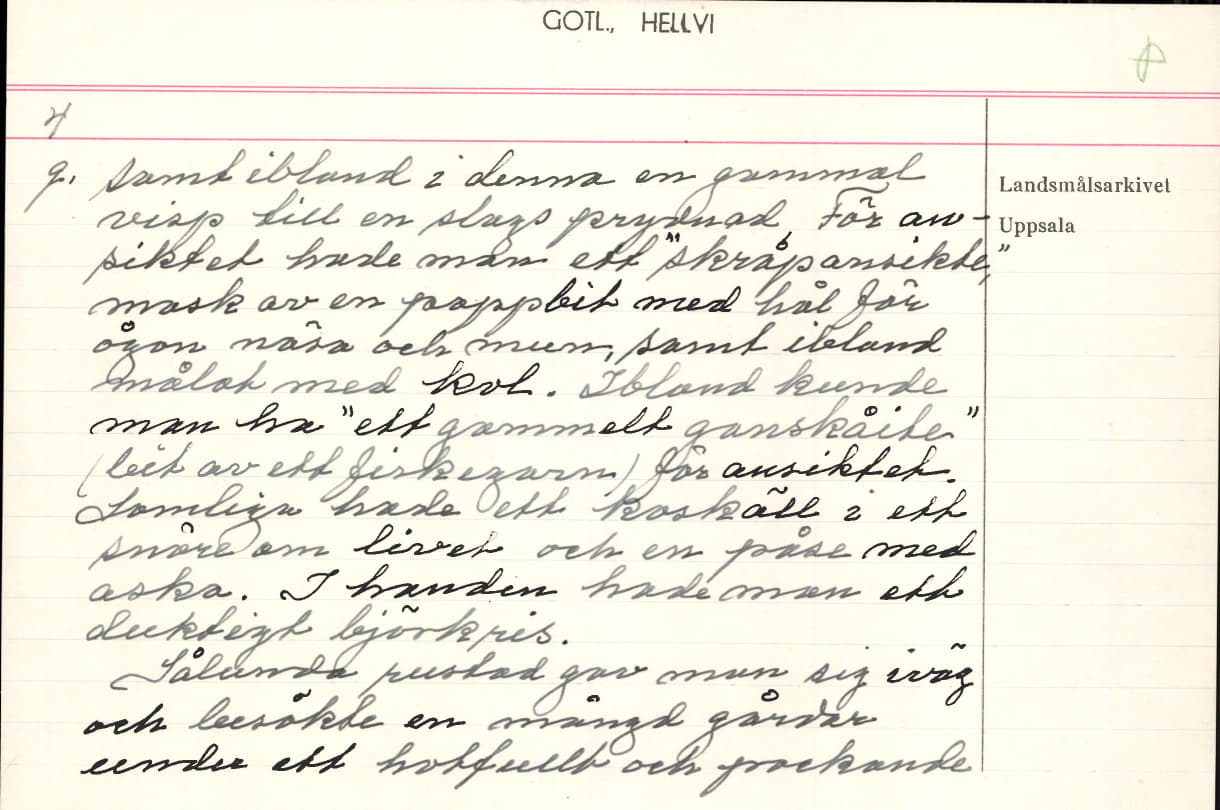 GOTL., HELLVI
4
g. samt ibland i denna en gammal
visp till en slags prydnad. För an-
siktet hade man ett "skråpansikte,"
mask av en pappbit med hål för
ögon näsa och mun, samt ibland
målat med kol. Ibland kunde
man ha "ett gammelt ganskåite"
(bit av ett fiskegarn) för ansiktet.
Somliga hade ett koskäll i ett
snöre om livet och en påse med
aska. I handen hade man ett
duktigt björkris.
Sålunda rustad gav man sig iväg
och besökte en mängd gårdar
under ett hotfullt och pockande
Landsmålsarkivet
Uppsala